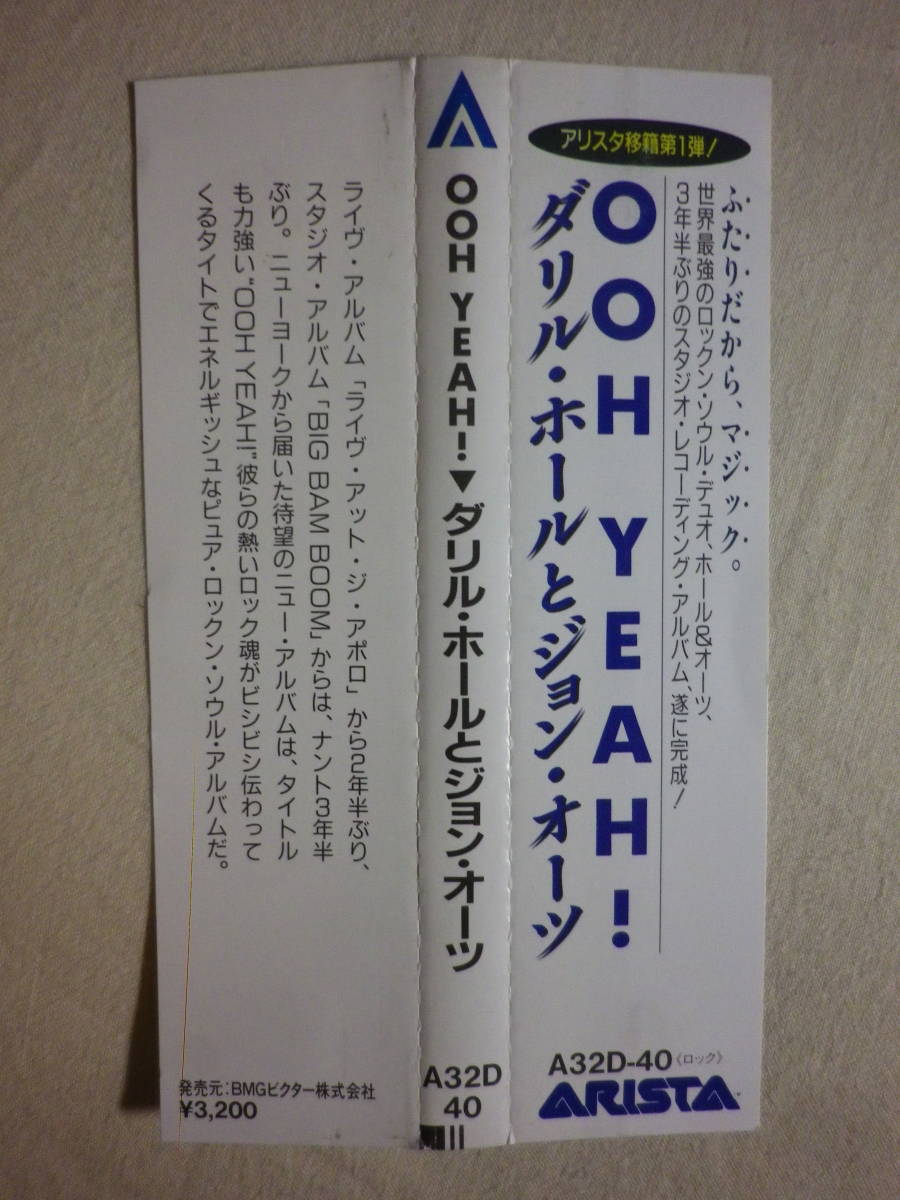 アリスタ移籍第1弾!
ふたりだから、マジック。
世界最強のロックン・ソウル・デュオ、ホール&オーツ、
3年半ぶりのスタジオ・レコーディング・アルバム、遂に完成!
OOH YEAH!
ダリル・ホールとジョン・オーツ
A32D-40〈ロック〉
ARISTA
OOH YEAH!▼ダリル・ホールとジョン・オーツ
A32D
40
ライヴ・アルバム「ライヴ・アット・ジ・アポロ」から2年半ぶり、
スタジオ・アルバム「BIG BAM BOOM」からは、ナント3年半
ぶり。ニューヨークから届いた待望のニュー・アルバムは、タイトル
も力強い"OOH YEAH!"彼らの熱いロック魂がビシビシ伝わって
くるタイトでエネルギッシュなピュア・ロックン・ソウル・アルバムだ。
発売元:BMGビクター株式会社
¥3,200